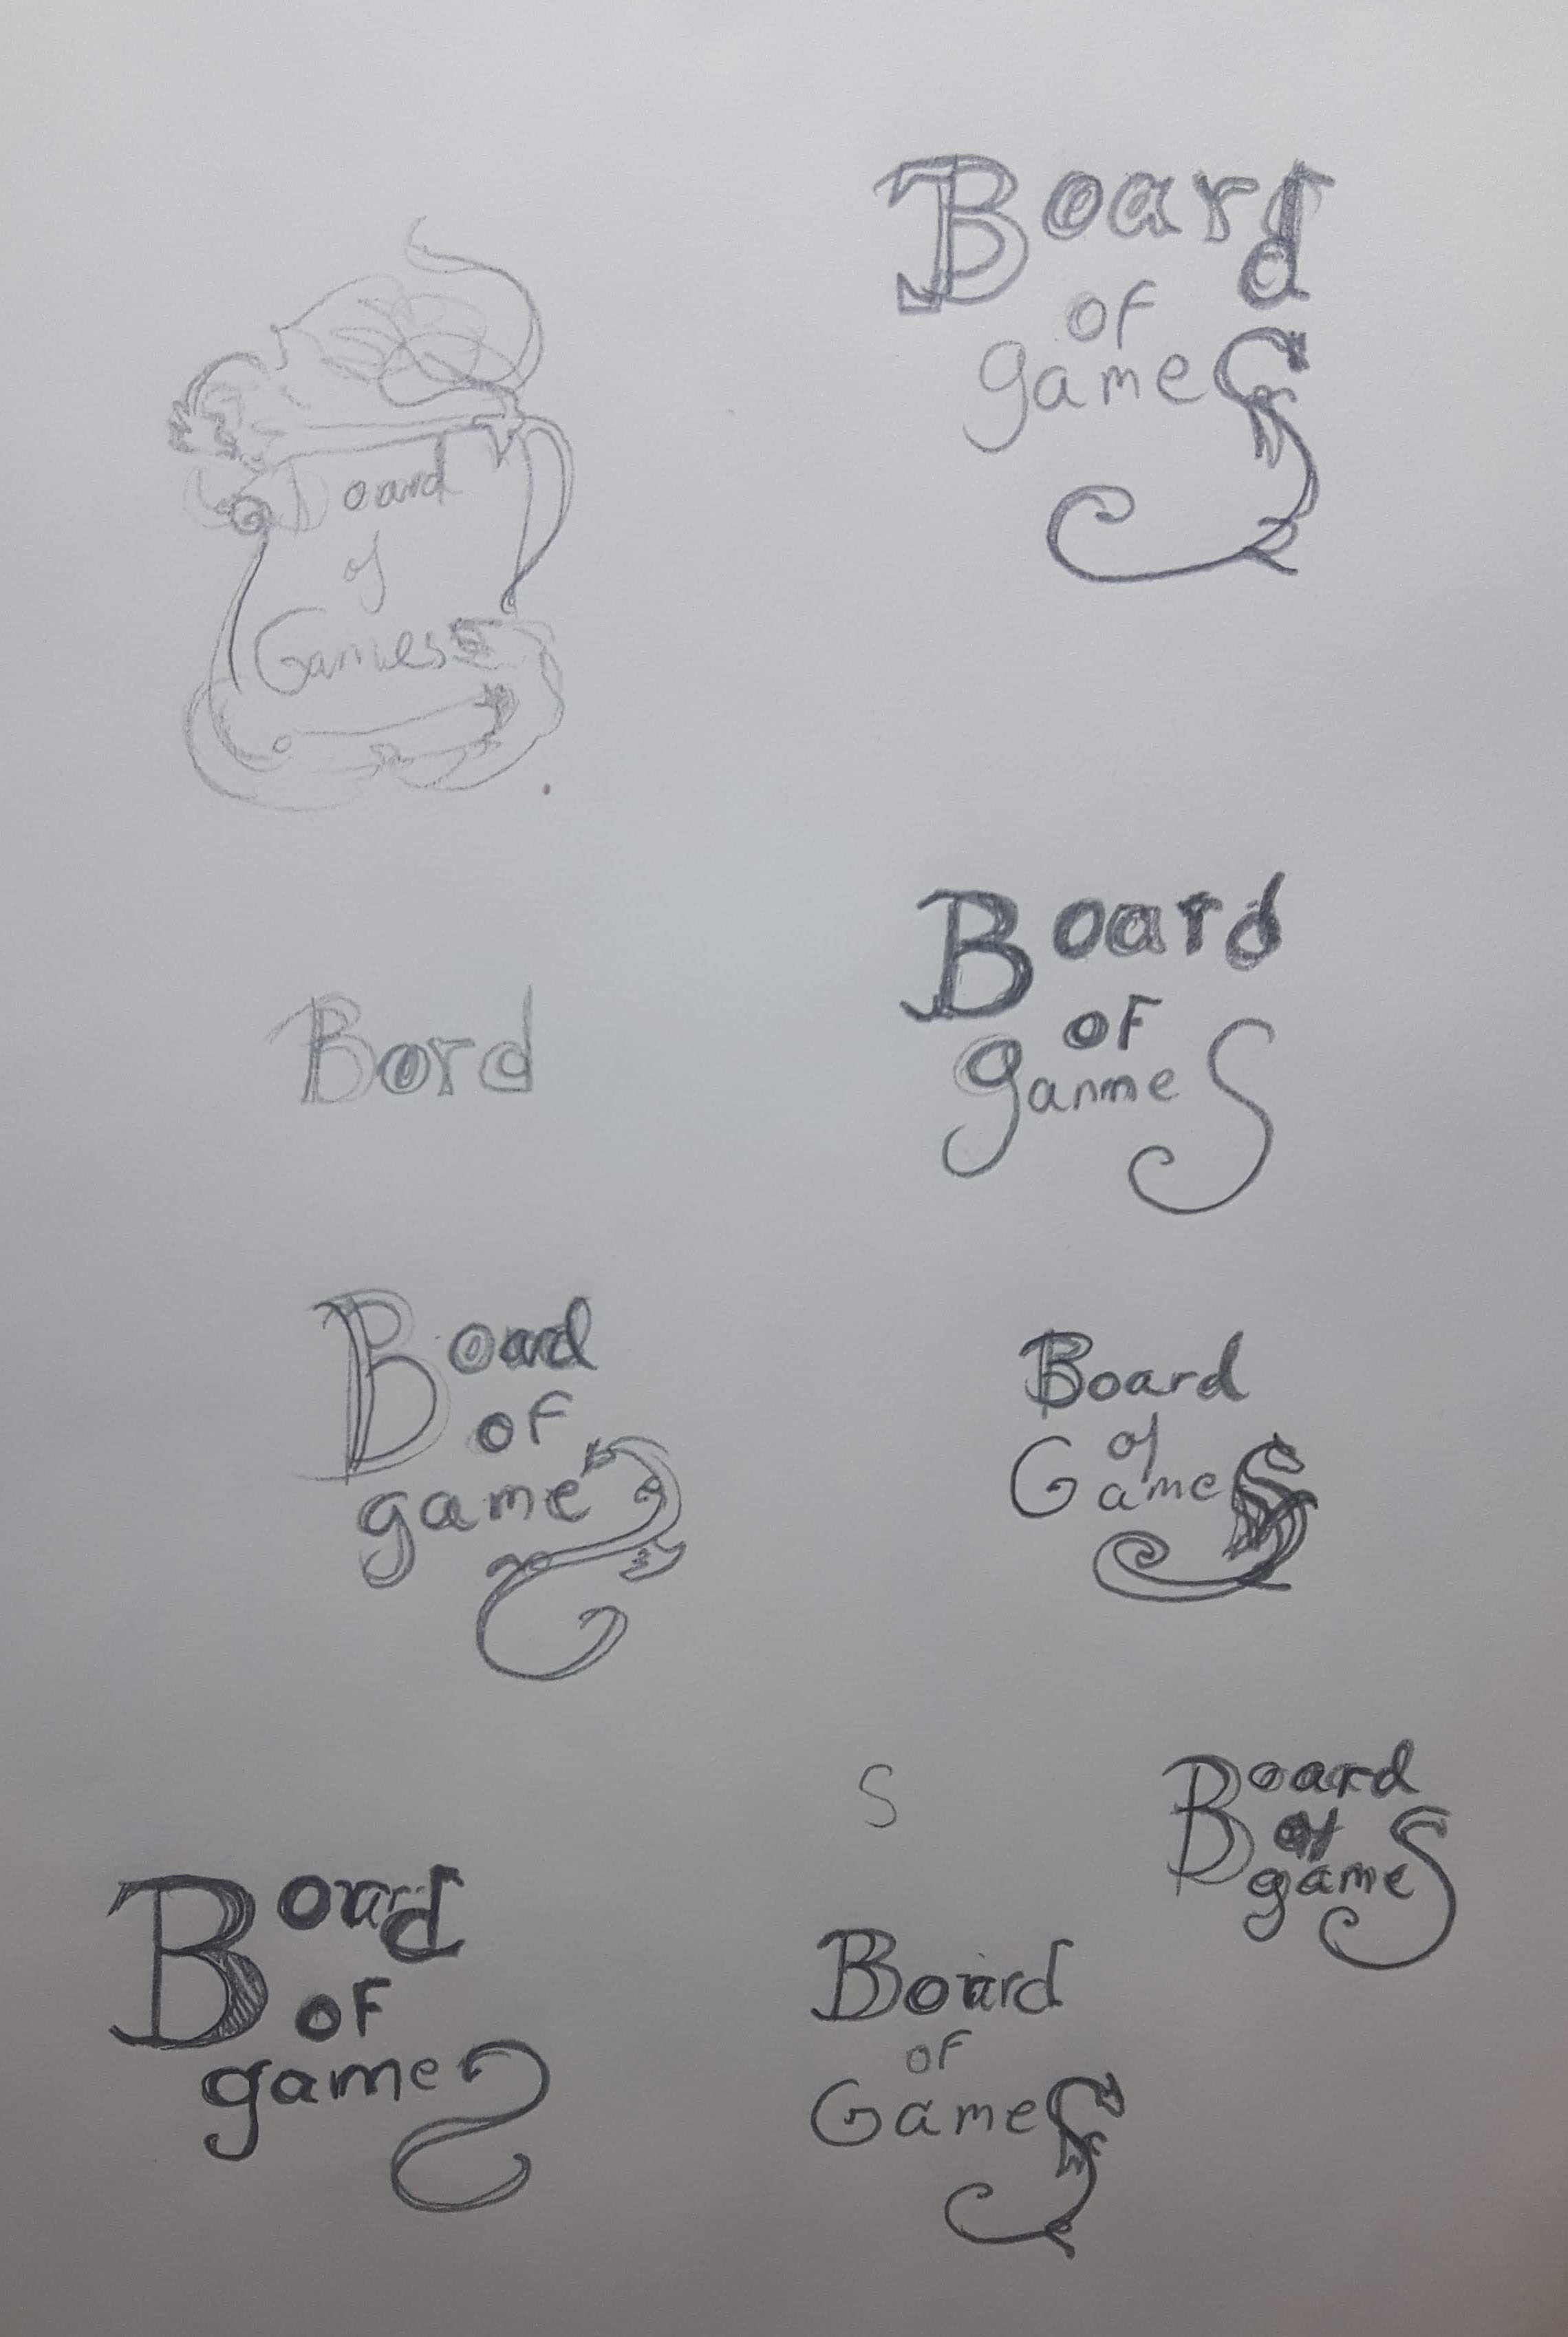 Board
of
Games
Board
of
games
Bord
Board
of
ganmes
Board
of
games
Board
of
Games
S
Board
of
games
Board
of
games
Board
of
Games